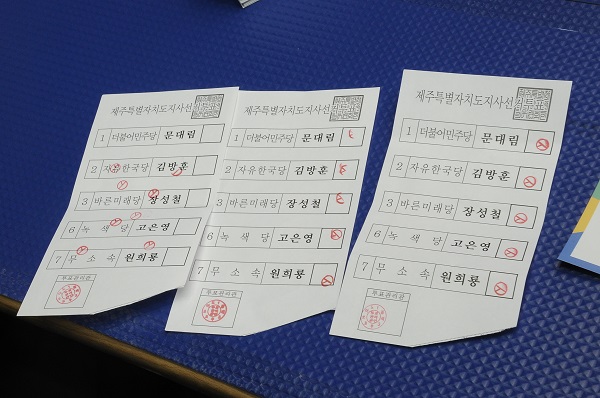 제주특별자치도지사선
1 더불어민주당 문대림
2 자유한국당 김방훈
3 바른미래당 장성철
6 녹색당 고은영
7 무소속 원희룡
투표관리관
제주특별자치도지사선
1 더불어민주당 문대림
2 자유한국당 김방훈
3 바른미래당 장성철
6 녹색당 고은영
7 무소속 원희룡
투표관리관
제주특별자치도지사선
1 더불어민주당 문대림
2 자유한국당 김방훈
3 바른미래당 장성철
6 녹색당 고은영
7 무소속 원희룡
투표관리관